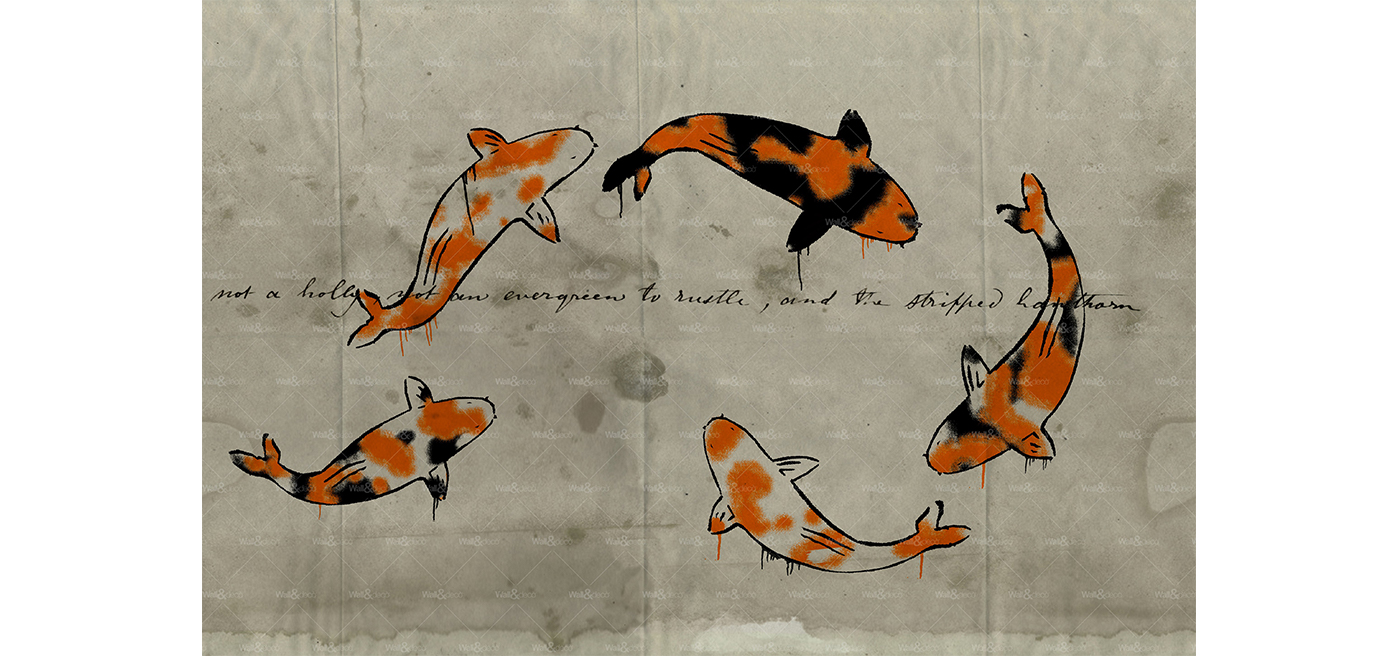 not a holly, not an evergreen to rustle, and the stripped hawthorn
Wall&deco